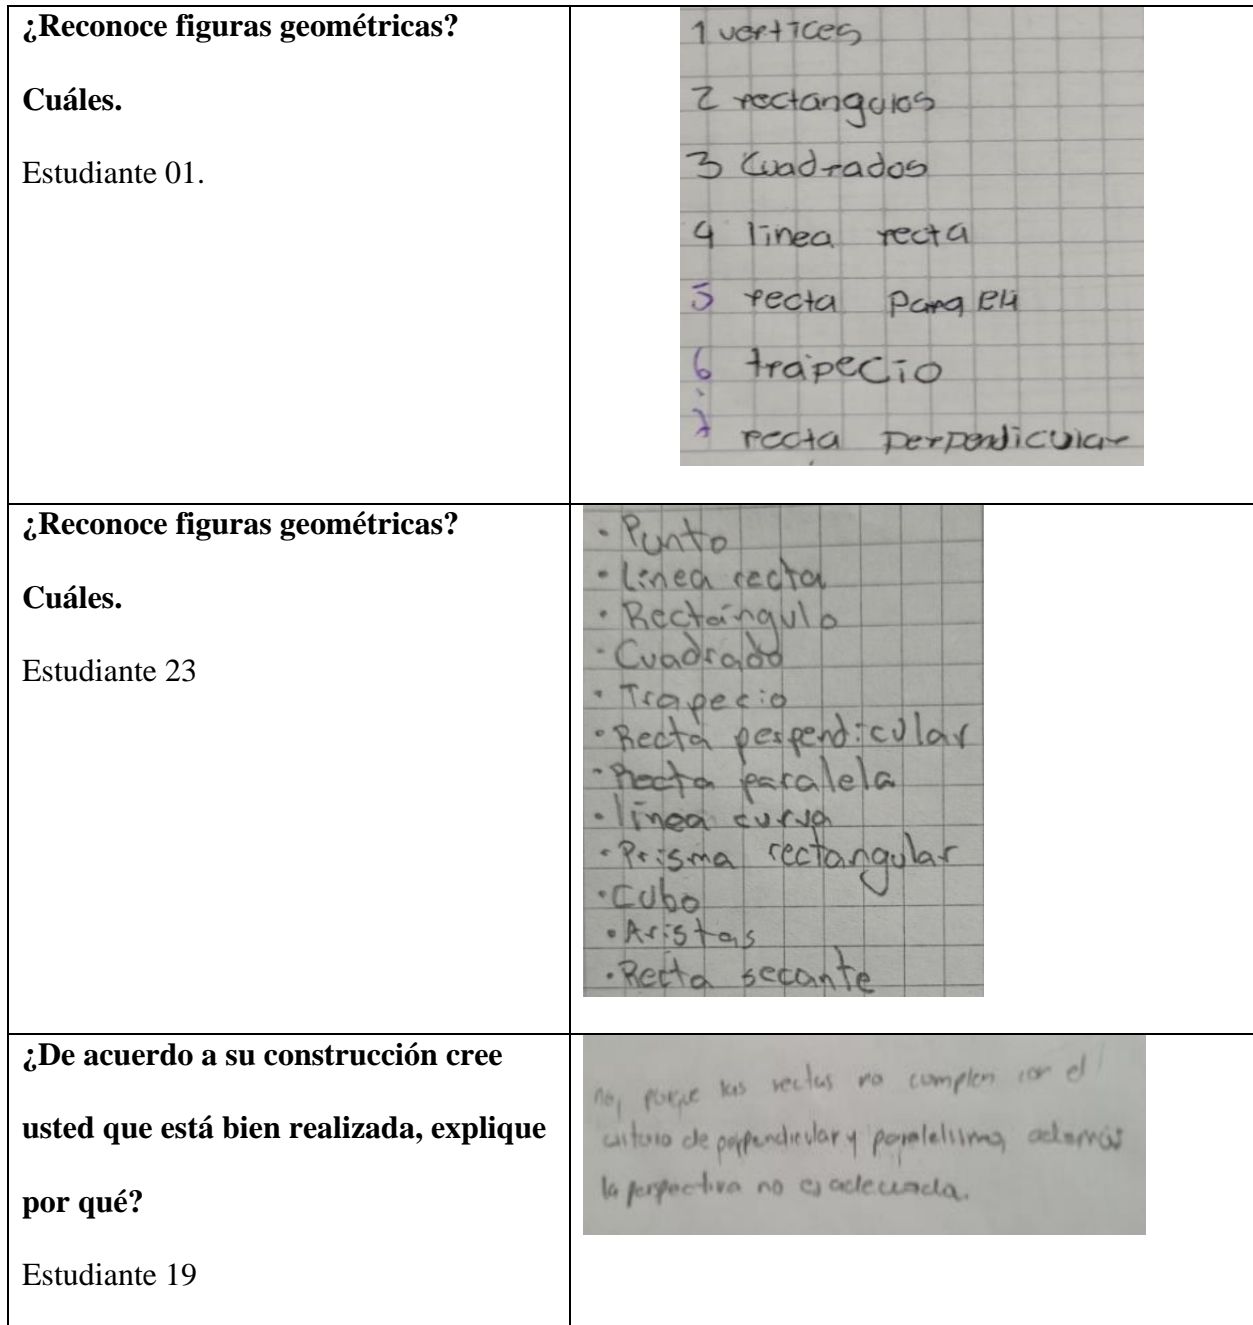 ¿Reconoce figuras geométricas?
Cuáles.
Estudiante 01.
1 vertices
2 rectangulos
3 Cuadrados
4 linea recta
5 recta Paralela
6 trapecio
7 recta perpendicular
¿Reconoce figuras geométricas?
Cuáles.
Estudiante 23
• Punto
• Linea recta
• Rectángulo
• Cuadrado
• Trapecio
• Recta perpendicular
• Recta paralela
• linea curva
• Prisma rectangular
• Cubo
• Aristas
• Recta secante
¿De acuerdo a su construcción cree
usted que está bien realizada, explique
por qué?
Estudiante 19
no, porque las rectas no cumplen con el
criterio de perpendicular y paralelismo, además
la perspectiva no es adecuada.